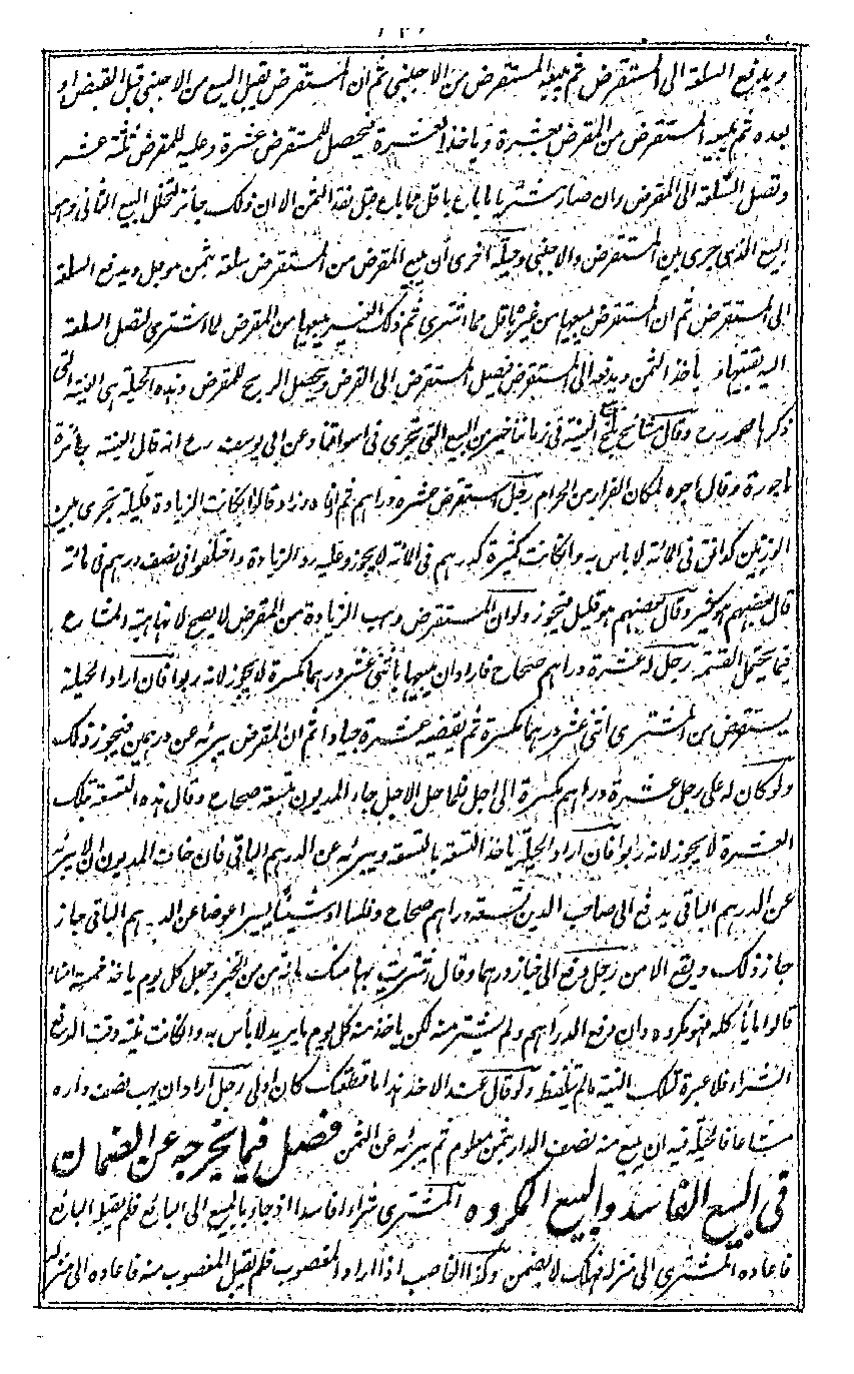 ويدفع السلعة الى المستقرض ثم يبيعه المستقرض من الاجنبى ثم ان المستقرض يقيل البيع من الاجنبى قبل القبض او
بعده ثم يبيعه المستقرض من المقرض بعشرة وياخذ العشرة فيحصل للمستقرض عشرة وعليه للمقرض ثلثة عشر
وتصل السلعة الى المقرض وان صار مشتريا ما باع باقل مما باع قبل نقد الثمن الا ان ذلك جائز لتخلل البيع الثانى وهو
البيع الذى جرى بين المستقرض والاجنبى وحيلة اخرى ان يبيع المقرض من المستقرض سلعة بثمن موجل ويدفع السلعة
الى المستقرض ثم ان المستقرض يبيعها من غيره باقل مما اشترى ثم ذلك الغير يبيعها من المقرض بما اشترى لتصل السلعة
اليه بعينها و ياخذ الثمن ويدفعه الى المستقرض فيصل المستقرض الى القرض ويحصل الربح للمقرض وهذه الحيلة هى العينة التى
ذكرها محمد رح وقال مشائخ بلخ العينة فى زماننا خير من البيع التى تجرى فى اسواقنا وعن ابى يوسف رح انه قال العينة جائزة
ماجورة وقال اجره لمكان الفرار من الحرام رجل استقرض عشرة دراهم ثم اتاه وزاد قالوا ان كانت الزيادة قليلة تجرى بين
الوزنين كدانق فى المائة لا باس به وان كانت كثيرة كدرهم فى المائة لا يجوز وعليه رد الزيادة واختلفوا فى نصف درهم فى مائة
قال بعضهم هو كثير وقال بعضهم هو قليل فيجوز ولو ان المستقرض وهب الزيادة من المقرض لا يصح لانها هبة المشاع
فيما يحتمل القسمة رجل له عشرة دراهم صحاح فاراد ان يبيعها باثنى عشر درهما مكسرة لا يجوز لانه ربوا فان اراد الحيلة
يستقرض من المشترى اثنى عشر درهما مكسرة ثم يقضيه عشرة جيادا ثم ان المقرض يبرئه عن درهمين فيجوز ذلك
ولو كان له على رجل عشرة دراهم مكسرة الى اجل فلما حل الاجل جاء المديون بتسعة صحاح وقال هذه التسعة بتلك
العشرة لا يجوز لانه ربوا فان اراد الحيلة ياخذ التسعة بالتسعة ويبرئه عن الدرهم الباقى فان خاف المديون ان لا يبرئه
عن الدرهم الباقى يدفع الى صاحب الدين تسعة دراهم صحاح وفلسا او شيئا يسيرا عوضا عن الدرهم الباقى جاز
جاز ذلك ويقع الامن رجل دفع الى خباز درهما وقال اشتريت بها منك مائة من من الخبز وجعل كل يوم ياخذ خمسة امناء
قالوا ما ياكله فهو مكروه وان دفع الدراهم ولم يشتر منه لكن ياخذ منه كل يوم ما يريد لا باس به وان كانت نيته وقت الدفع
الشراء فلا عبرة لتلك النية ما لم يتلفظ ولو قال عند الاخذ هذا ما قطعك كان اولى رجل اراد ان يهب نصف داره
مشاعا فالحيلة فيه ان يبيع منه نصف الدار بثمن معلوم ثم يبرئه عن الثمن فصل فيما يخرجه عن الضمان
فى البيع الفاسد والبيع المكروه المشترى شراء فاسدا اذ جاء بالمبيع الى البائع فلم يقبله البائع
فاعاده المشترى الى منزله فهلك لا يضمن وكذا الغاصب اذا اراد المغصوب فلم يقبل المغصوب منه فاعاده الى منزله